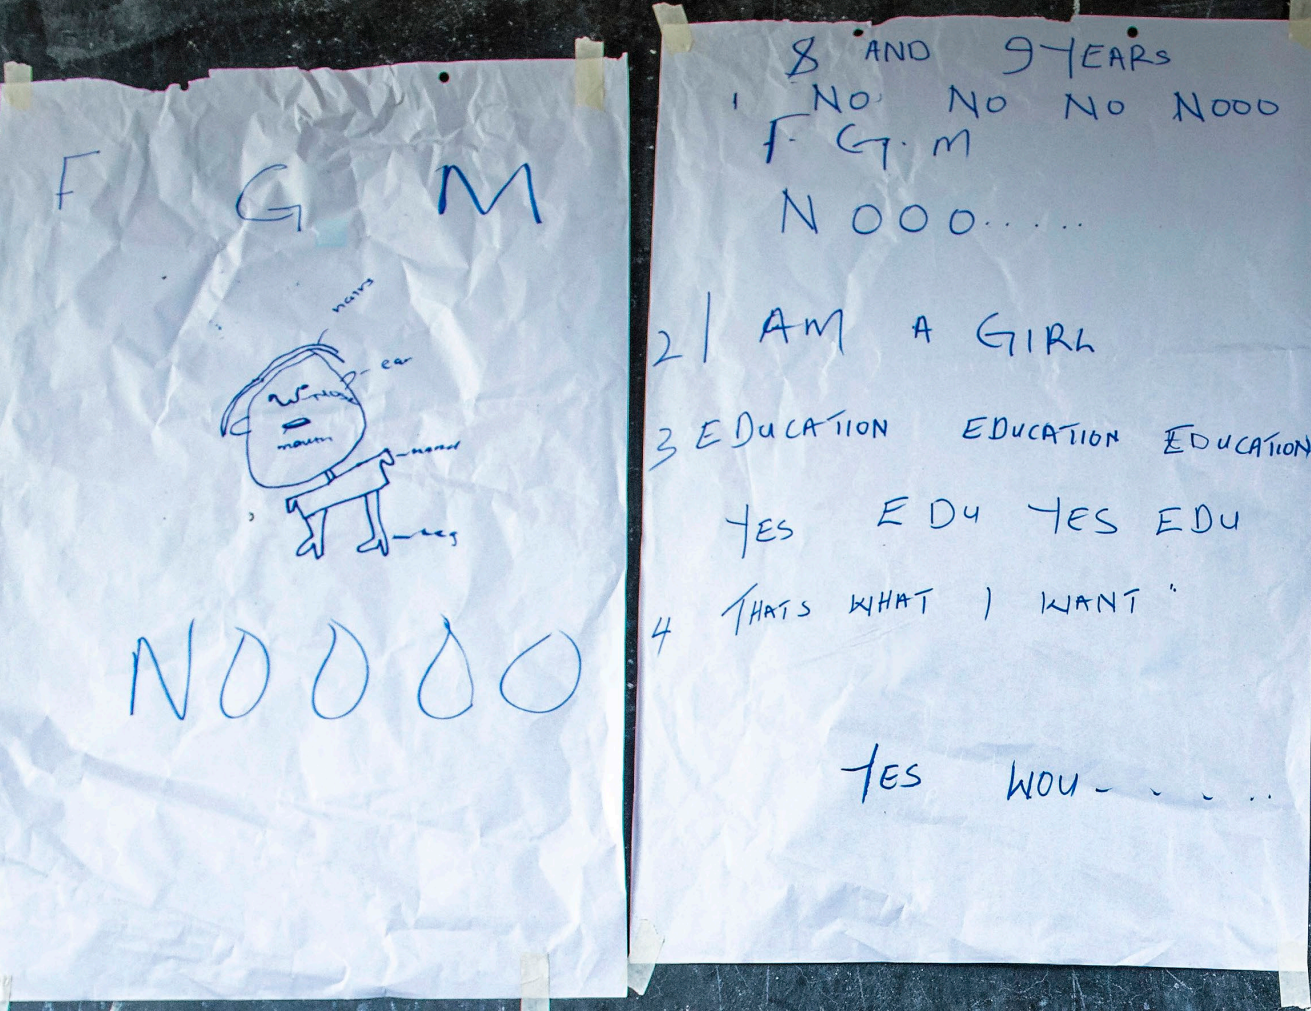 F G M
hairs
ear
Nose
mouth
hand
leg
NOOOO
8 AND 9 YEARS
1 NO NO NO NOOO
F. G. M
NOOO.....
2 I AM A GIRL
3 EDUCATION EDUCATION EDUCATION
YES EDU YES EDU
4 THATS WHAT I WANT "
YES WOU- - - - ..